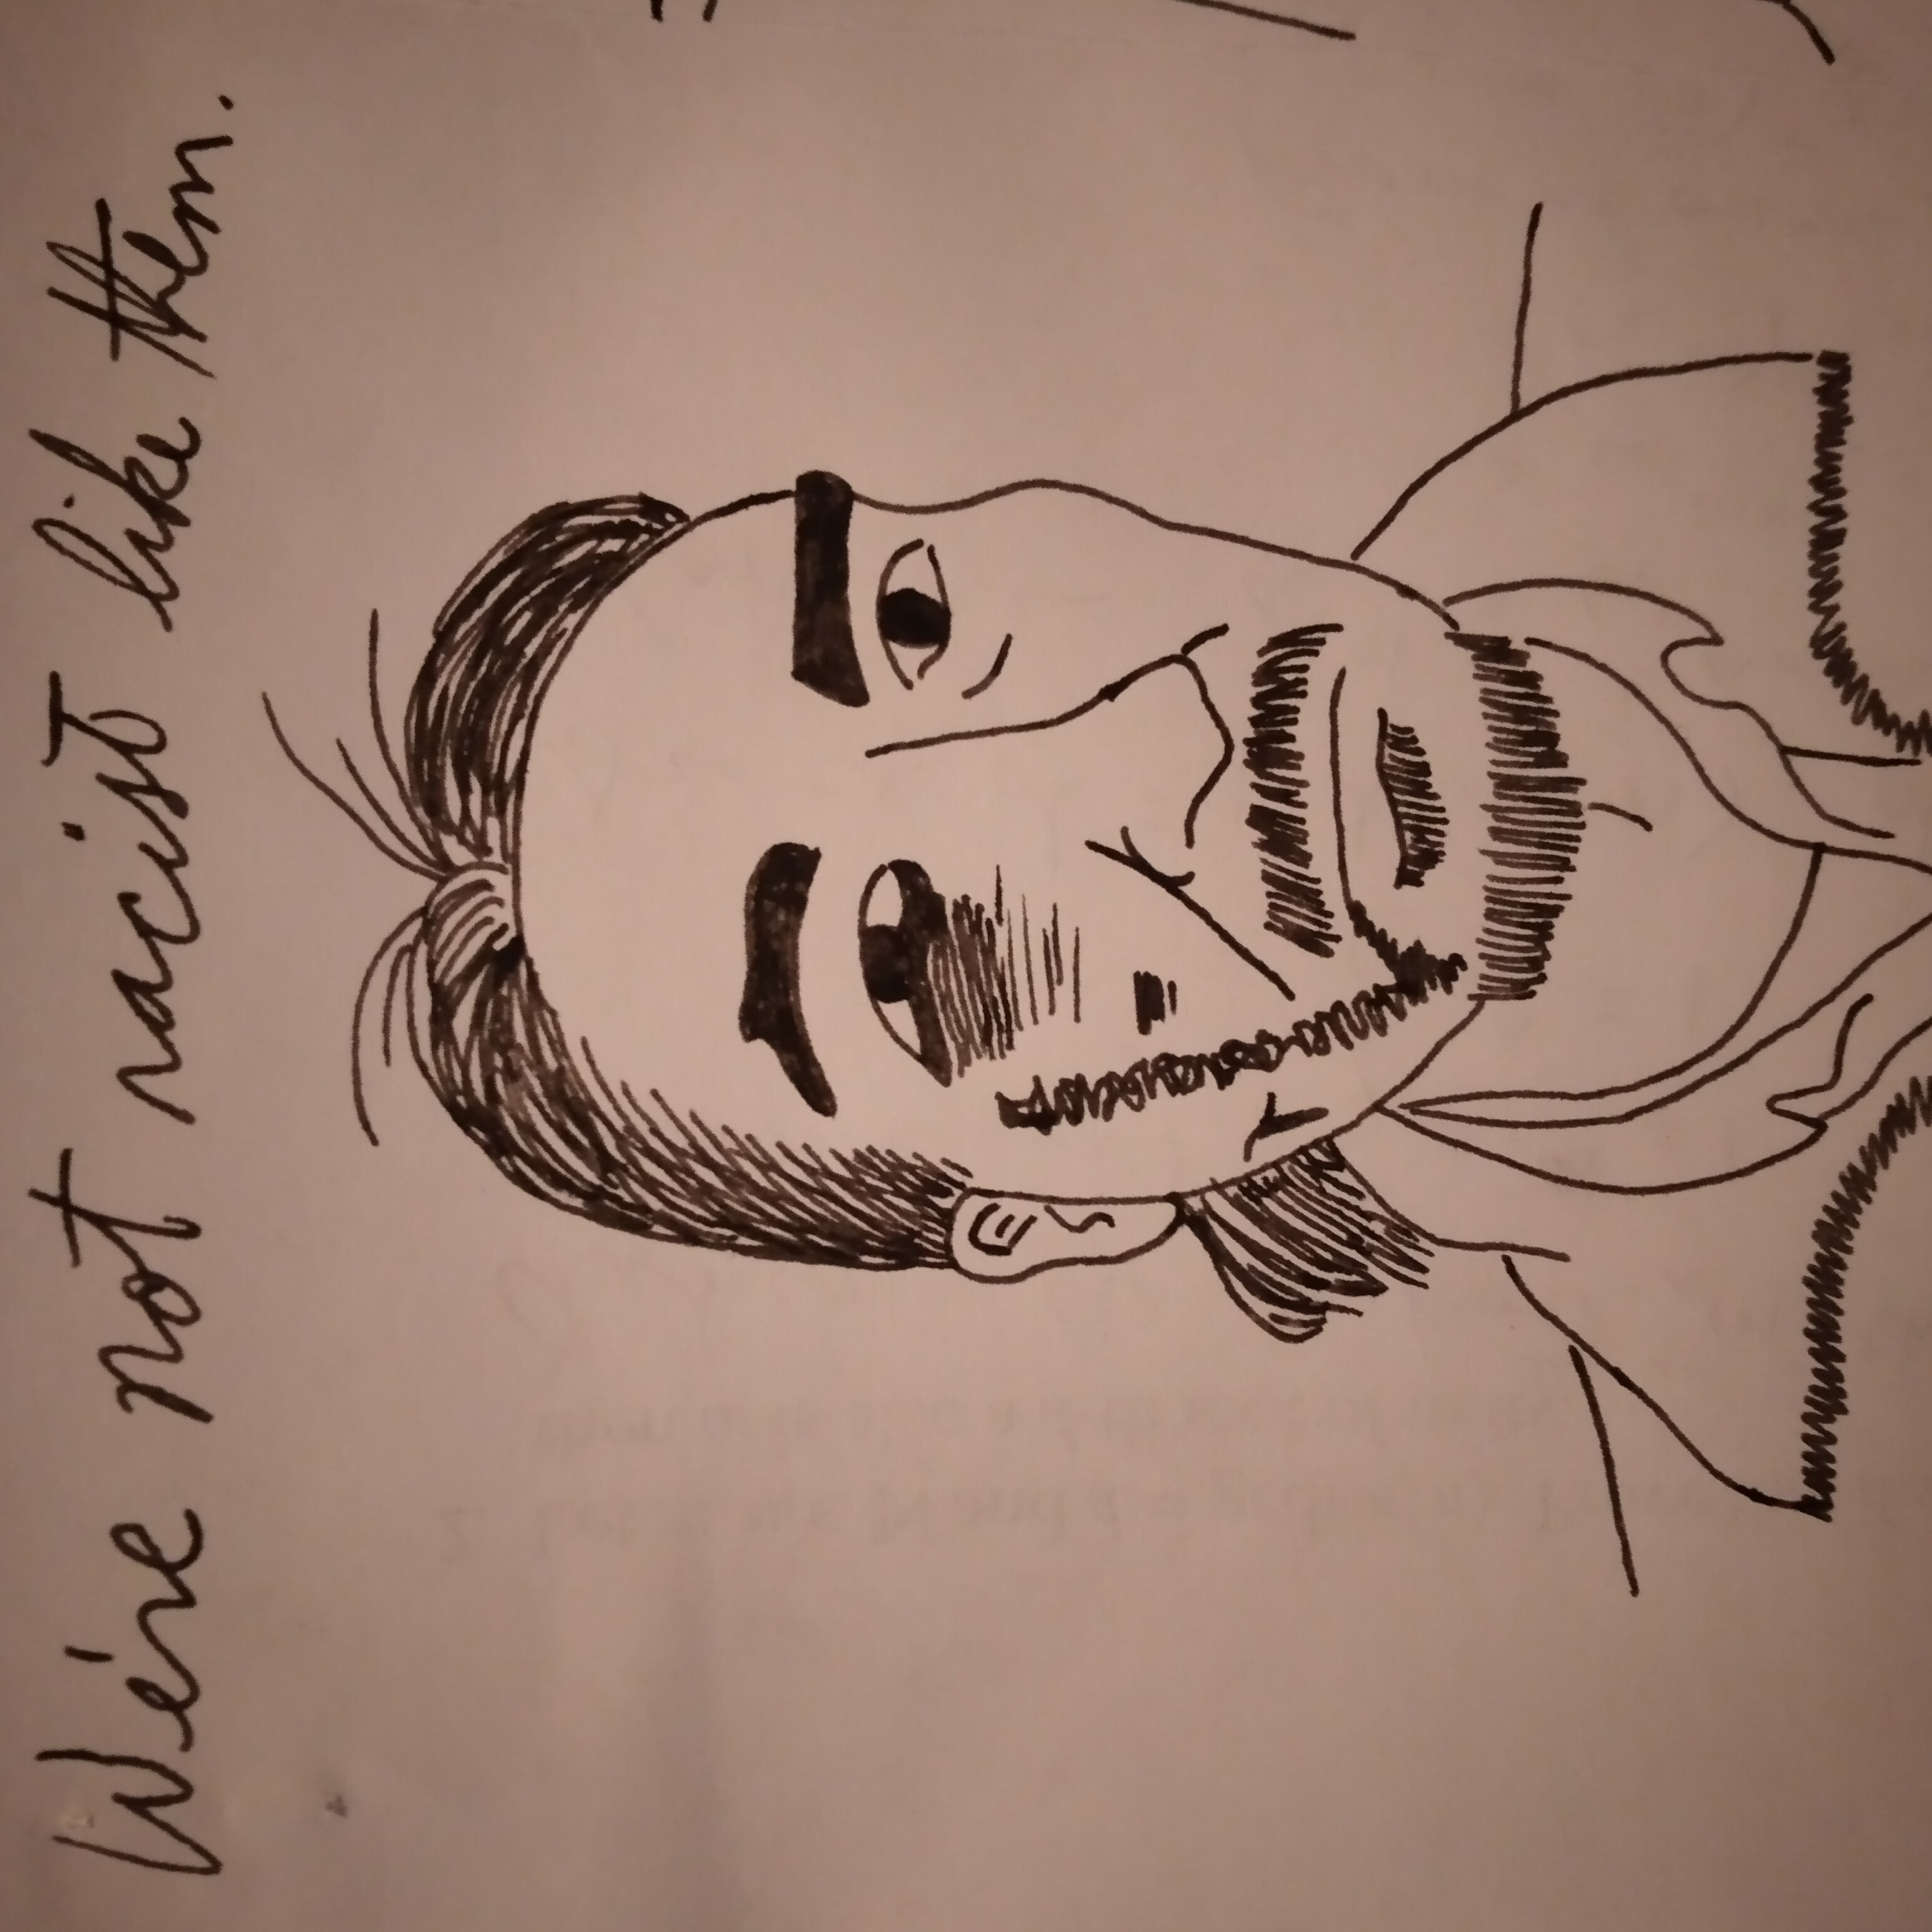 We're not racist like them.